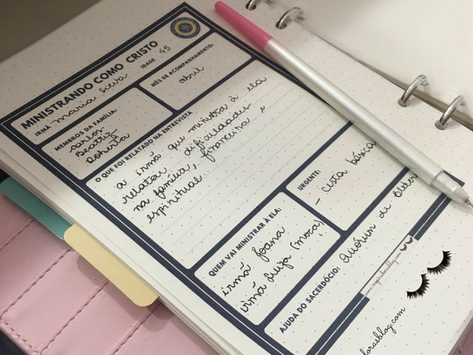 MINISTRANDO COMO CRISTO
IRMÃ maria silva IDADE 45
MEMBROS DA FAMÍLIA:
Carlos
Beatriz
Roberta
MÊS DE ACOMPANHAMENTO:
abril
O QUE FOI RELATADO NA ENTREVISTA
a irmã que ministra à ela
relatou dificuldades
na família, financeira e
espiritual.
QUEM VAI MINISTRAR À ELA:
irmã Joana
irmã Luiza (moça)
URGENTE:
- cesta básica
AJUDA DO SACERDÓCIO:
Quórum de